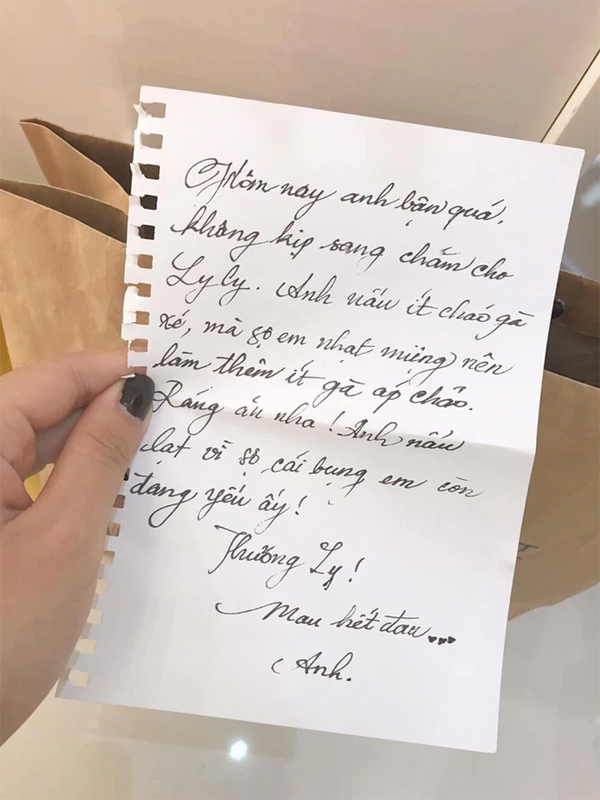 Hôm nay anh bận quá,
không kịp sang chăm cho
Ly Ly. Anh nấu ít cháo gà
xé, mà sợ em nhạt miệng nên
làm thêm ít gà áp chảo.
Ráng ăn nha! Anh nấu
lạt vì sợ cái bụng em còn
đang yếu ấy!
Thương Ly!
Mau hết đau...
Anh.